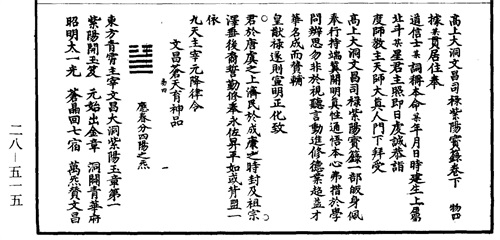 高上大洞文昌司祿紫陽寶籙卷下　物四
據某貫居住奉
道信士某謂稱本命某年月日時建生上屬
北斗某星君主照即日虔誠恭詣
度師教主天師大真人門下拜受
高上大洞文昌司祿紫陽寶籙一部皈身佩
奉行持端冀開明真性通悟本心弗措於學
問辨思勿非於視聽言動進修德業超並才
華名成而贊輔
皇猷祿遂則宣明正化致
君於唐虞之上濟民於成康之時封及祖宗
澤垂後裔誓勤脩奉永佐昇平如或背盟一
依
九天主宰元降律令
文昌蒼天育神品
卷四
應春分四陽之炁
東方青霄主宰文昌大洞紫陽玉章第一
紫陽開玉笈　元始出金章　洞開青華府
昭明太一光　蒼高回七宿　萬炁贊文昌
二八-五一五